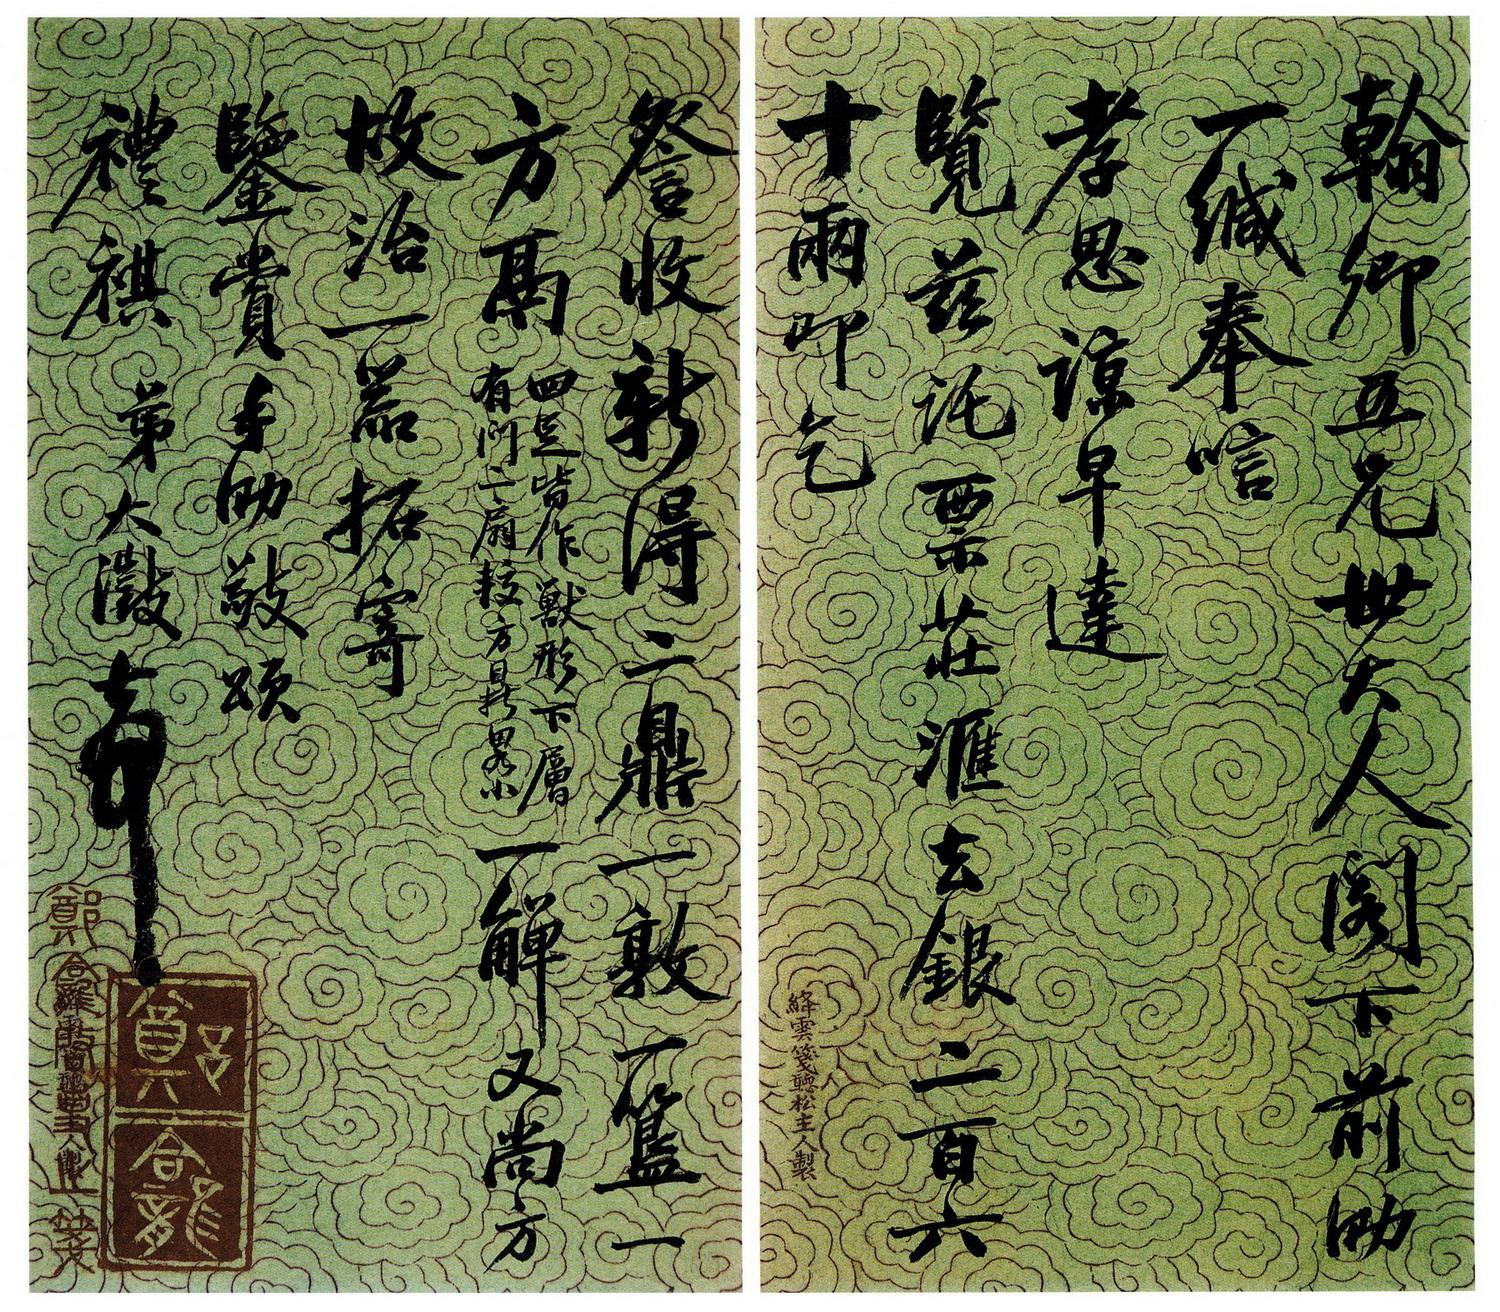 翰卿五兄世大人閣下前泐
一緘奉唁
孝思諒早達
覽茲託票莊滙去銀二百六
十兩即乞
絳雲箋聽松主人製
詧收新得二鼎一敦一簠一
方鬲四足皆作獸形下層
有門二扇較方鼎畧小一觶又尚方
故治一器拓寄
鑒賞手泐敬頌
禮祺 弟大澂